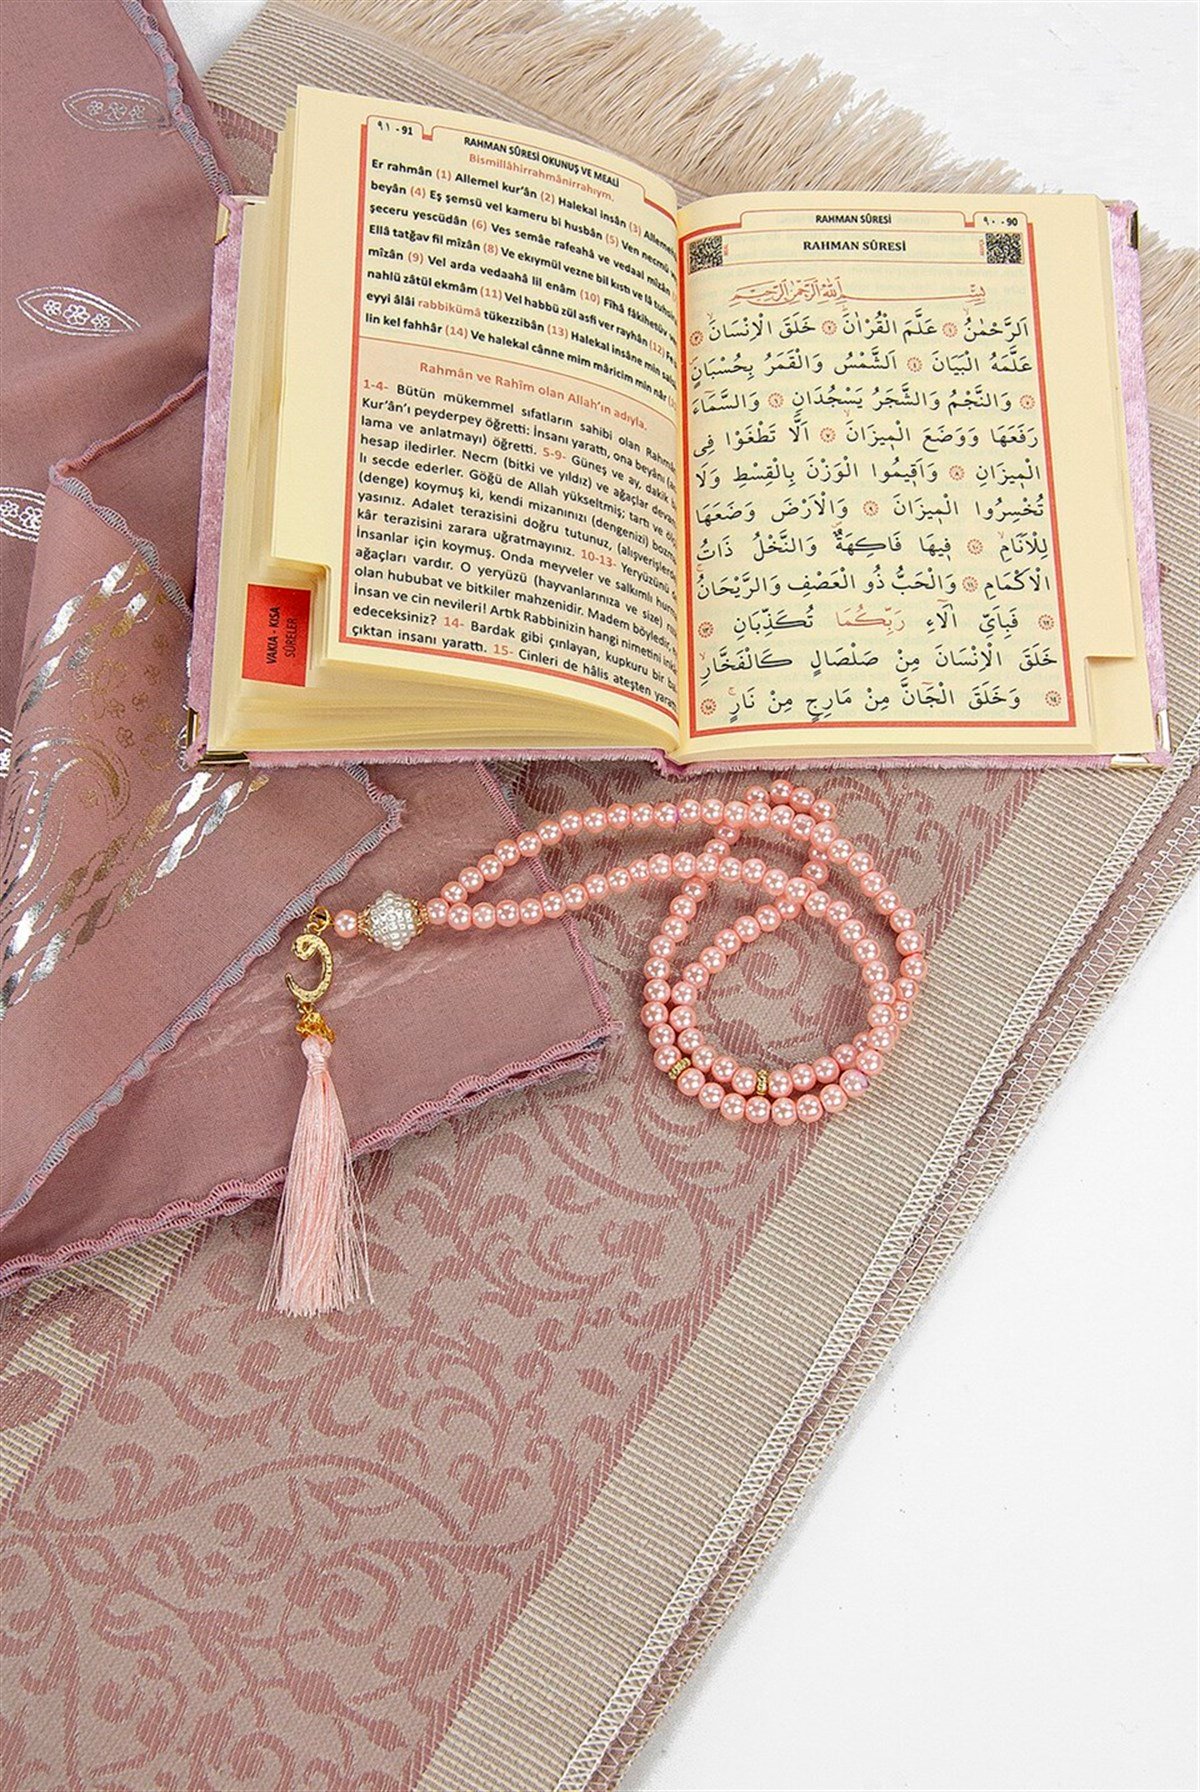 ٩١ - 91
RAHMAN SÛRESİ OKUNUŞ VE MEALİ
Bismillâhirrahmânirrahıym.
Er rahmân (1) Allemel kur'ân (2) Halekal insân (3) Allemeh
beyân (4) Eş şemsü vel kameru bi husbân (5) Ven necmü
şeceru yescüdân (6) Ves semâe rafeahâ ve vedaal mîzân
Ellâ tatğav fil mîzân (8) Ve ekıymül vezne bil kıstı ve lâ tuhsirul
mîzân (9) Vel arda vedaahâ lil enâm (10) Fîhâ fâkihetüv
nahlü zâtül ekmâm (11) Vel habbü zül asfi ver rayhân (12)
eyyi âlâi rabbikümâ tükezzibân (13) Halekal insâne min
lin kel fahhâr (14) Ve halekal cânne mim mâricim min nâr
Rahmân ve Rahîm olan Allah'ın adıyla.
1-4- Bütün mükemmel sıfatların sahibi olan
Kur'ân'ı peyderpey öğretti: İnsanı yarattı, ona beyânı
lama ve anlatmayı) öğretti. 5-9- Güneş ve ay, dakik
hesap iledirler. Necm (bitki ve yıldız) ve ağaçlar
lı secde ederler. Göğü de Allah yükseltmiş; tartı ve
(denge) koymuş ki, kendi mizanınızı (dengenizi)
yasınız. Adalet terazisini doğru tutunuz, (alışverişlerde
kâr terazisini zarara uğratmayınız. 10-13- Yeryüzünü
İnsanlar için koymuş. Onda meyveler ve salkımlı
ağaçları vardır. O yeryüzü (hayvanlarınıza ve size)
olan hububat ve bitkiler mahzenidir. Madem böyledir,
İnsan ve cin nevileri! Artık Rabbinizin hangi nimetini
edeceksiniz? 14- Bardak gibi çınlayan, kupkuru bir
çıktan insanı yarattı. 15- Cinleri de hâlis ateşten
VAKIA - KISA
SÛRELER
RAHMAN SÛRESİ
٩٠ - 90
RAHMAN SÛRESİ
بِسْمِ اللّٰهِ الرَّحْمٰنِ الرَّحِيمِ
اَلرَّحْمٰنُۙ ﴿١﴾ عَلَّمَ الْقُرْاٰنَۜ ﴿٢﴾ خَلَقَ الْاِنْسَانَۙ ﴿٣﴾
عَلَّمَهُ الْبَيَانَ ﴿٤﴾ اَلشَّمْسُ وَالْقَمَرُ بِحُسْبَانٍۖ
﴿٥﴾ وَالنَّجْمُ وَالشَّجَرُ يَسْجُدَانِ ﴿٦﴾ وَالسَّمَٓاءَ
رَفَعَهَا وَوَضَعَ الْم۪يزَانَۙ ﴿٧﴾ اَلَّا تَطْغَوْا فِي
الْم۪يزَانِ ﴿٨﴾ وَاَق۪يمُوا الْوَزْنَ بِالْقِسْطِ وَلَا
تُخْسِرُوا الْم۪يزَانَ ﴿٩﴾ وَالْاَرْضَ وَضَعَهَا
لِلْاَنَامِۙ ﴿١٠﴾ ف۪يهَا فَاكِهَةٌۖ وَالنَّخْلُ ذَاتُ
الْاَكْمَامِۖ ﴿١١﴾ وَالْحَبُّ ذُو الْعَصْفِ وَالرَّيْحَانُۚ
﴿١٢﴾ فَبِاَيِّ اٰلَٓاءِ رَبِّكُمَا تُكَذِّبَانِ ﴿١٣﴾
خَلَقَ الْاِنْسَانَ مِنْ صَلْصَالٍ كَالْفَخَّارِۙ
﴿١٤﴾ وَخَلَقَ الْجَٓانَّ مِنْ مَارِجٍ مِنْ نَارٍۚ ﴿١٥﴾